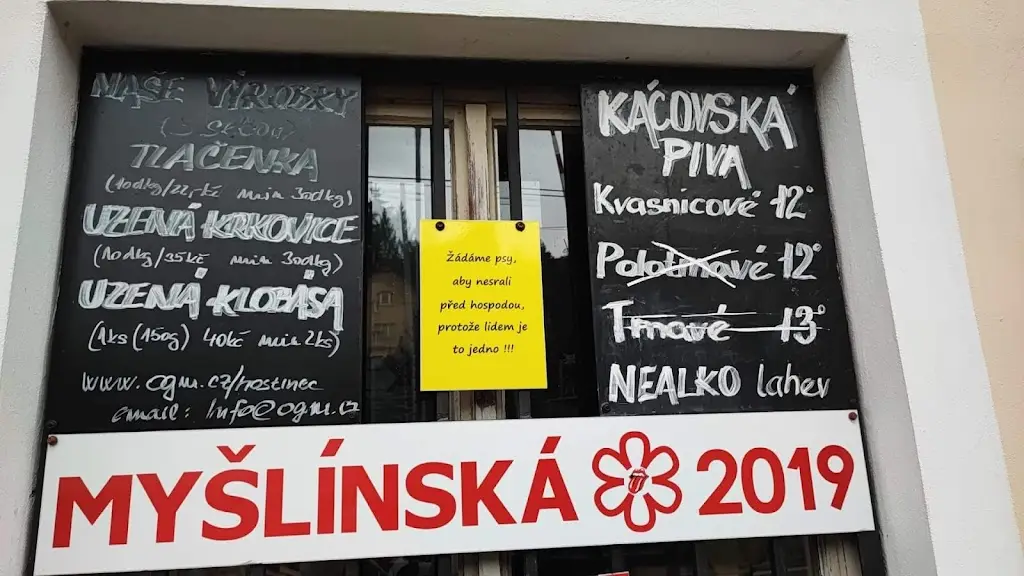 NAŠE VÝROBKY
TLAČENKA
(10dkg/22,-kč min 30dkg)
UZENÁ KRKOVICE
(10dkg/35kč min 30dkg)
UZENÁ KLOBÁSA
(1ks (150g) 40kč min 2ks)
www.ogm.cz/hostinec
email: info@ogm.cz
Žádáme psy,
aby nesrali
před hospodou,
protože lidem je
to jedno !!!
KÁCOVSKÁ
PIVA
Kvasnicové 12°
Polotmavé 12°
Tmavé 13°
NEALKO lahev
MYŠLÍNSKÁ 2019